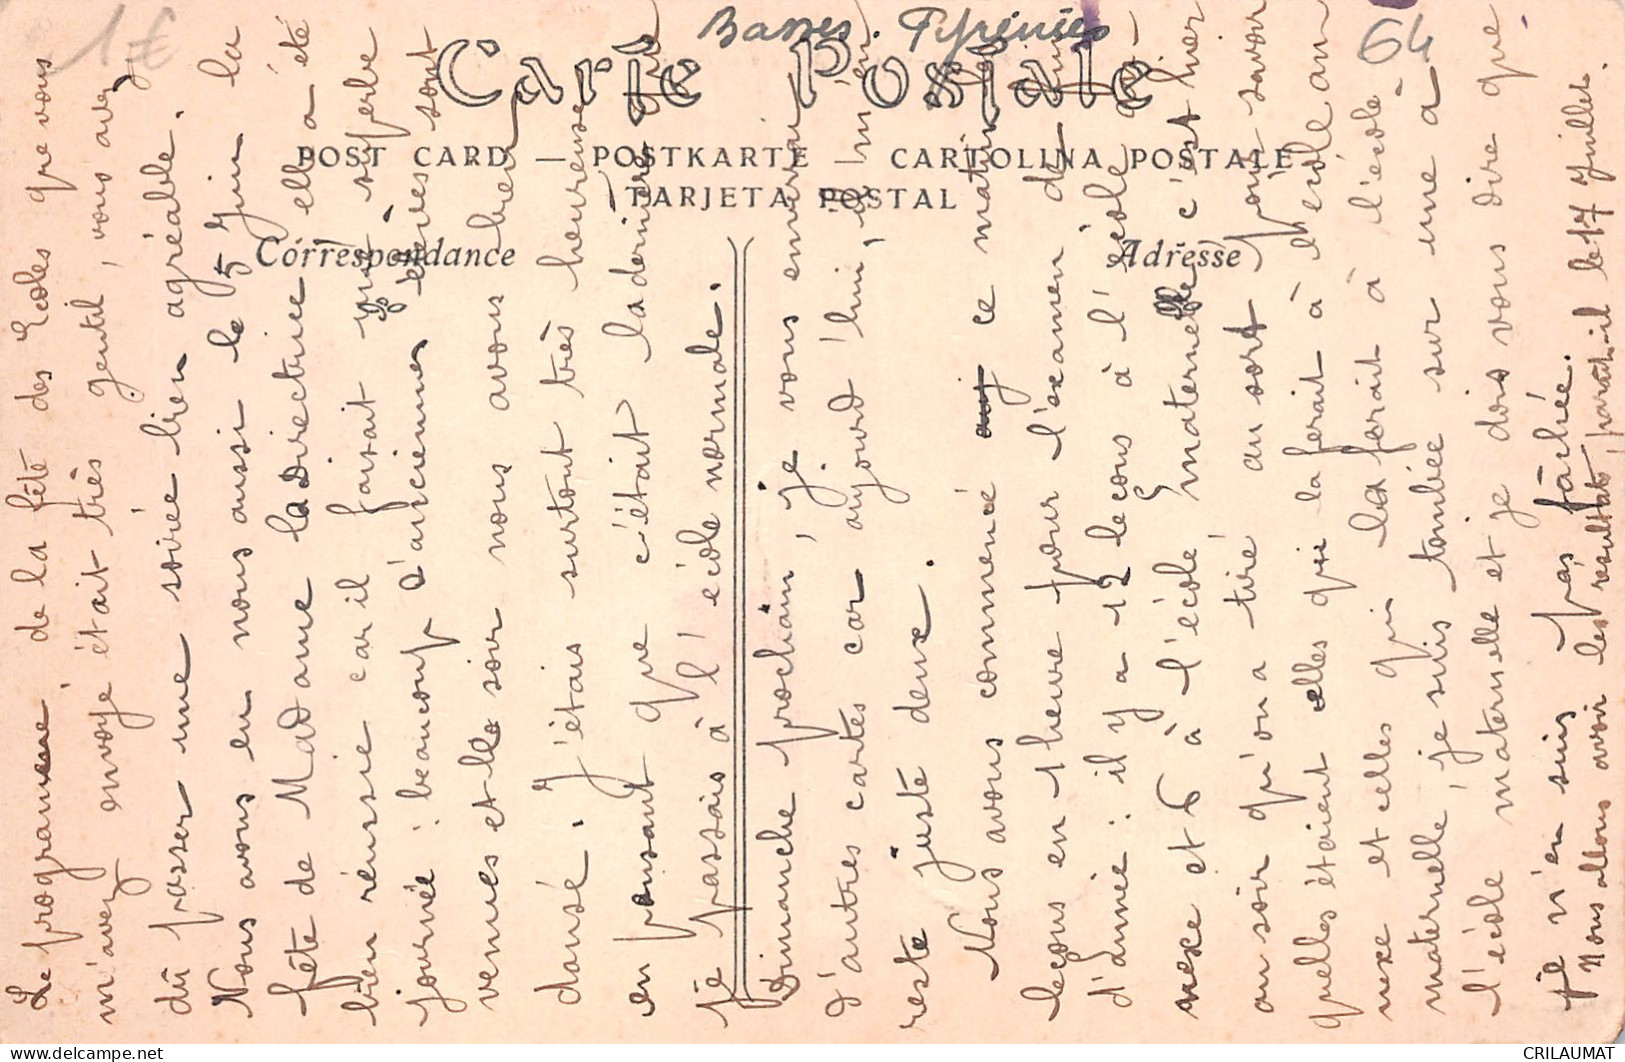 1€
Basses. Pyrénées
64
Carte Postale
POST CARD — POSTKARTE — CARTOLINA POSTALE
TARJETA POSTAL
Correspondance
Adresse
Le programme de la fête des Ecoles que vous
m'avez envoyé était très gentil, vous avez
dû passer une soirée bien agréable.
Nous avons eu nous aussi le 5 Juin la
fête de Madame la directrice elle a été
bien réussie car il faisait une superbe
journée: beaucoup d'anciennes élèves sont
venues et le soir nous avons bien
dansé. J'étais surtout très heureuse
en pensant que c'était la dernière que
je passais à l'école normale.
Dimanche prochain, je vous enverrai
d'autres cartes car aujourd'hui, il m'en
reste juste deux.
Nous avons commencé ce matin les
leçons en 1 heure pour l'examen de fin
d'année: il y a 12 leçons à l'école
nexe et 6 à l'école maternelle c'est hier
au soir qu'on a tiré au sort pour savoir
quelles étaient celles qui la ferait à l'école an
nexe et celles qui la ferait à l'école
maternelle, je suis tombée sur une à
l'école maternelle et je dois vous dire que
je n'en suis pas fâchée.
Nous allons avoir les résultats, paraît-il le 17 Juillet.
CRILAUMAT